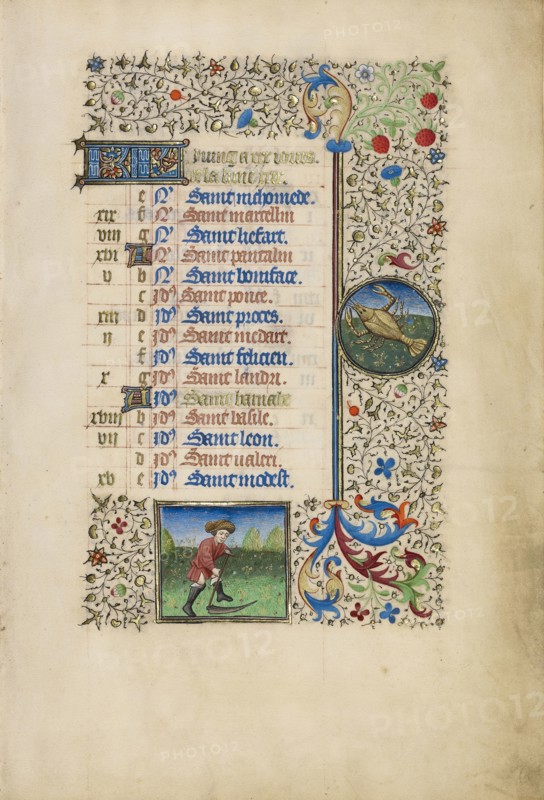 PHOTO12
KL Juing a xxx iours.
la lune
e N' Saint nichomede.
xix f N' Saint marcellin
viii g N' Saint liefart.
xvi A N' Saint pantalin
v b N' Saint boniface.
c Id' Saint ponce.
xiii d Id' Saint proces.
ii e Id' Saint medart.
f Id' Saint felicien.
x g Id' Saint landri.
A Id' Saint barnabe
xviii b Id' Saint basile.
vii c Id' Saint leon.
d Id' Saint valeri.
xv e Id' Saint modest.
PHOTO12
PHOTO12
PHOTO12